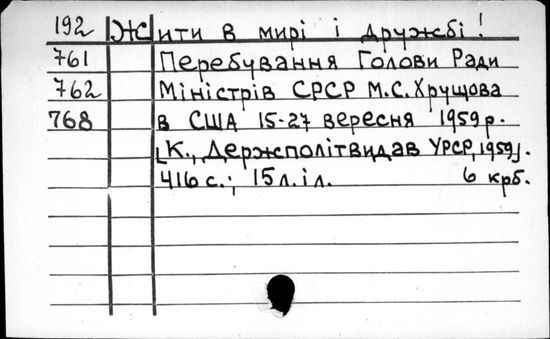 192 Жити в мирі і дружбі!
761 Перебування Голови Ради
762 Міністрів СРСР М.С.Хрущова
768 в США 15-27 вересня 1959 р.
[К., Держполітвидав УРСР, 1959].
416 с.; 15 л. іл. 6 крб.